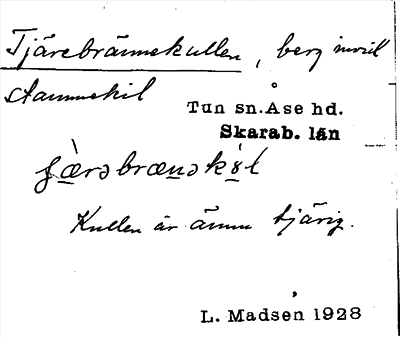 Tjärebrännekullen, berg invid
Stommekil
Tun sn. Åse hd.
Skarab. län
Kullen är ännu tjärig.
L. Madsen 1928